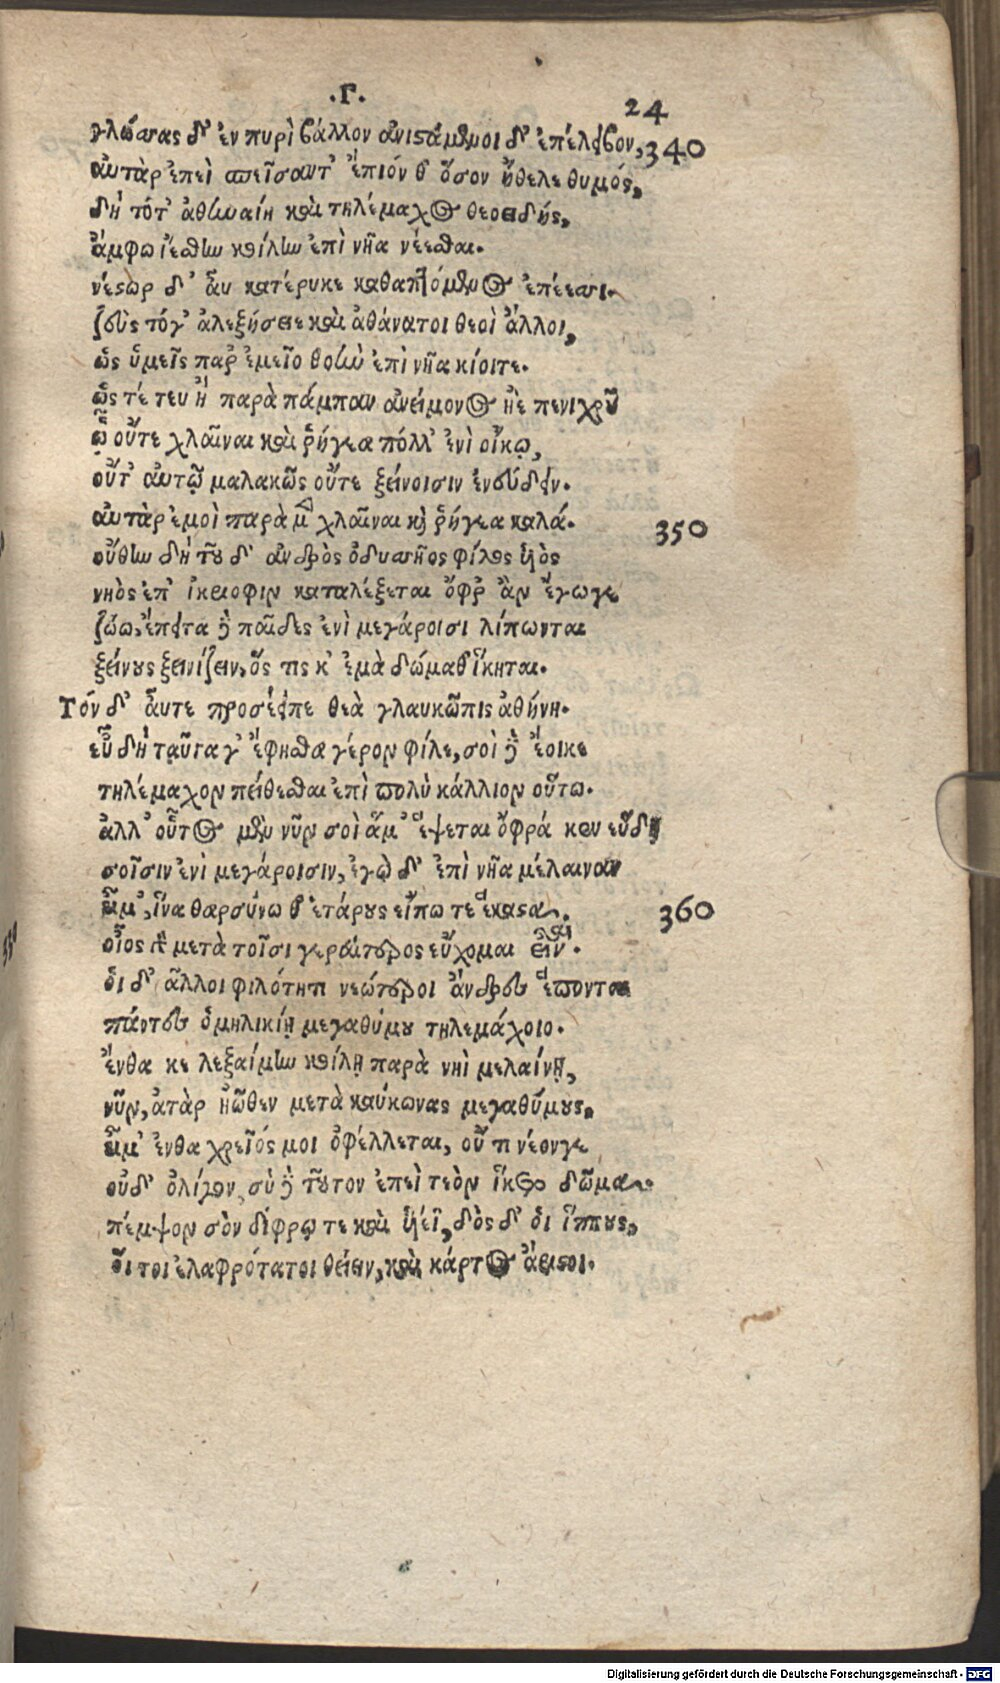 .Γ. 24
γλώσσας δ' ἐν πυρὶ βάλλον ἀνιστάμενοι δ' ἐπέλειβον, 340
αὐτὰρ ἐπεὶ σπεῖσαντ' ἔπιόν θ' ὅσον ἤθελε θυμός,
δὴ τότ' ἀθηναίη καὶ τηλέμαχος θεοειδής,
ἄμφω ἱέσθην κοίλην ἐπὶ νῆα νέεσθαι.
νέστωρ δ' αὖ κατέρυκε καθαπτόμενος ἐπέεσσι.
ζεὺς τόγ' ἀλεξήσειε καὶ ἀθάνατοι θεοὶ ἄλλοι,
ὡς ὑμεῖς παρ' ἐμεῖο θοὴν ἐπὶ νῆα κίοιτε.
ὥς τέ τευ ἢ παρὰ πάμπαν ἀνείμονος ἠὲ πενιχροῦ
ᾧ οὔτε χλαῖναι καὶ ῥήγεα πόλλ' ἐνὶ οἴκῳ,
οὔτ' αὐτῷ μαλακῶς οὔτε ξείνοισιν ἐνεύδειν.
αὐτὰρ ἐμοὶ παρὰ μὲν χλαῖναι καὶ ῥήγεα καλά. 350
οὔθην δὴ τοῦ δ' ἀνδρὸς ὀδυσσῆος φίλος υἱὸς
νηὸς ἐπ' ἰκριόφιν καταλέξεται ὄφρ' ἂν ἔγωγε
ζώω, ἔπειτα δὲ παῖδες ἐνὶ μεγάροισι λίπωνται
ξείνους ξεινίζειν, ὅς τις κ' ἐμὰ δώμαθ' ἵκηται.
Τόν δ' αὖτε προσέειπε θεὰ γλαυκῶπις ἀθήνη.
εὖ δὴ ταῦτα γ' ἔφησθα γέρον φίλε, σοὶ δὲ ἔοικε
τηλέμαχον πείθεσθαι ἐπὶ πολὺ κάλλιον οὕτω.
ἀλλ' οὗτος μὲν νῦν σοὶ ἅμ' ἕψεται ὄφρά κεν εὕδῃ
σοῖσιν ἐνὶ μεγάροισιν, ἐγὼ δ' ἐπὶ νῆα μέλαιναν
εἶμ', ἵνα θαρσύνω θ' ἑτάρους εἴπω τε ἕκαστα. 360
οἶος γὰρ μετὰ τοῖσι γεραίτερος εὔχομαι εἶναι.
οἱ δ' ἄλλοι φιλότητι νεώτεροι ἄνδρες ἕπονται
πάντες ὁμηλικίῃ μεγαθύμου τηλεμάχοιο.
ἔνθα κε λεξαίμην κοίλῃ παρὰ νηὶ μελαίνῃ,
νῦν, ἀτὰρ ἠῶθεν μετὰ καύκωνας μεγαθύμους,
εἶμ' ἔνθα χρεῖός μοι ὀφέλλεται, οὔ τι νέονγε
οὐδ' ὀλίγον, σὺ δὲ τοῦτον ἐπεὶ τεὸν ἵκετο δῶμα.
πέμψον σὺν δίφρῳ τε καὶ υἱέϊ, δὸς δ' οἱ ἵππους,
οἵ τοι ἐλαφρότατοι θείειν, καὶ κάρτος ἄριστοι.
Digitalisierung gefördert durch die Deutsche Forschungsgemeinschaft - DFG